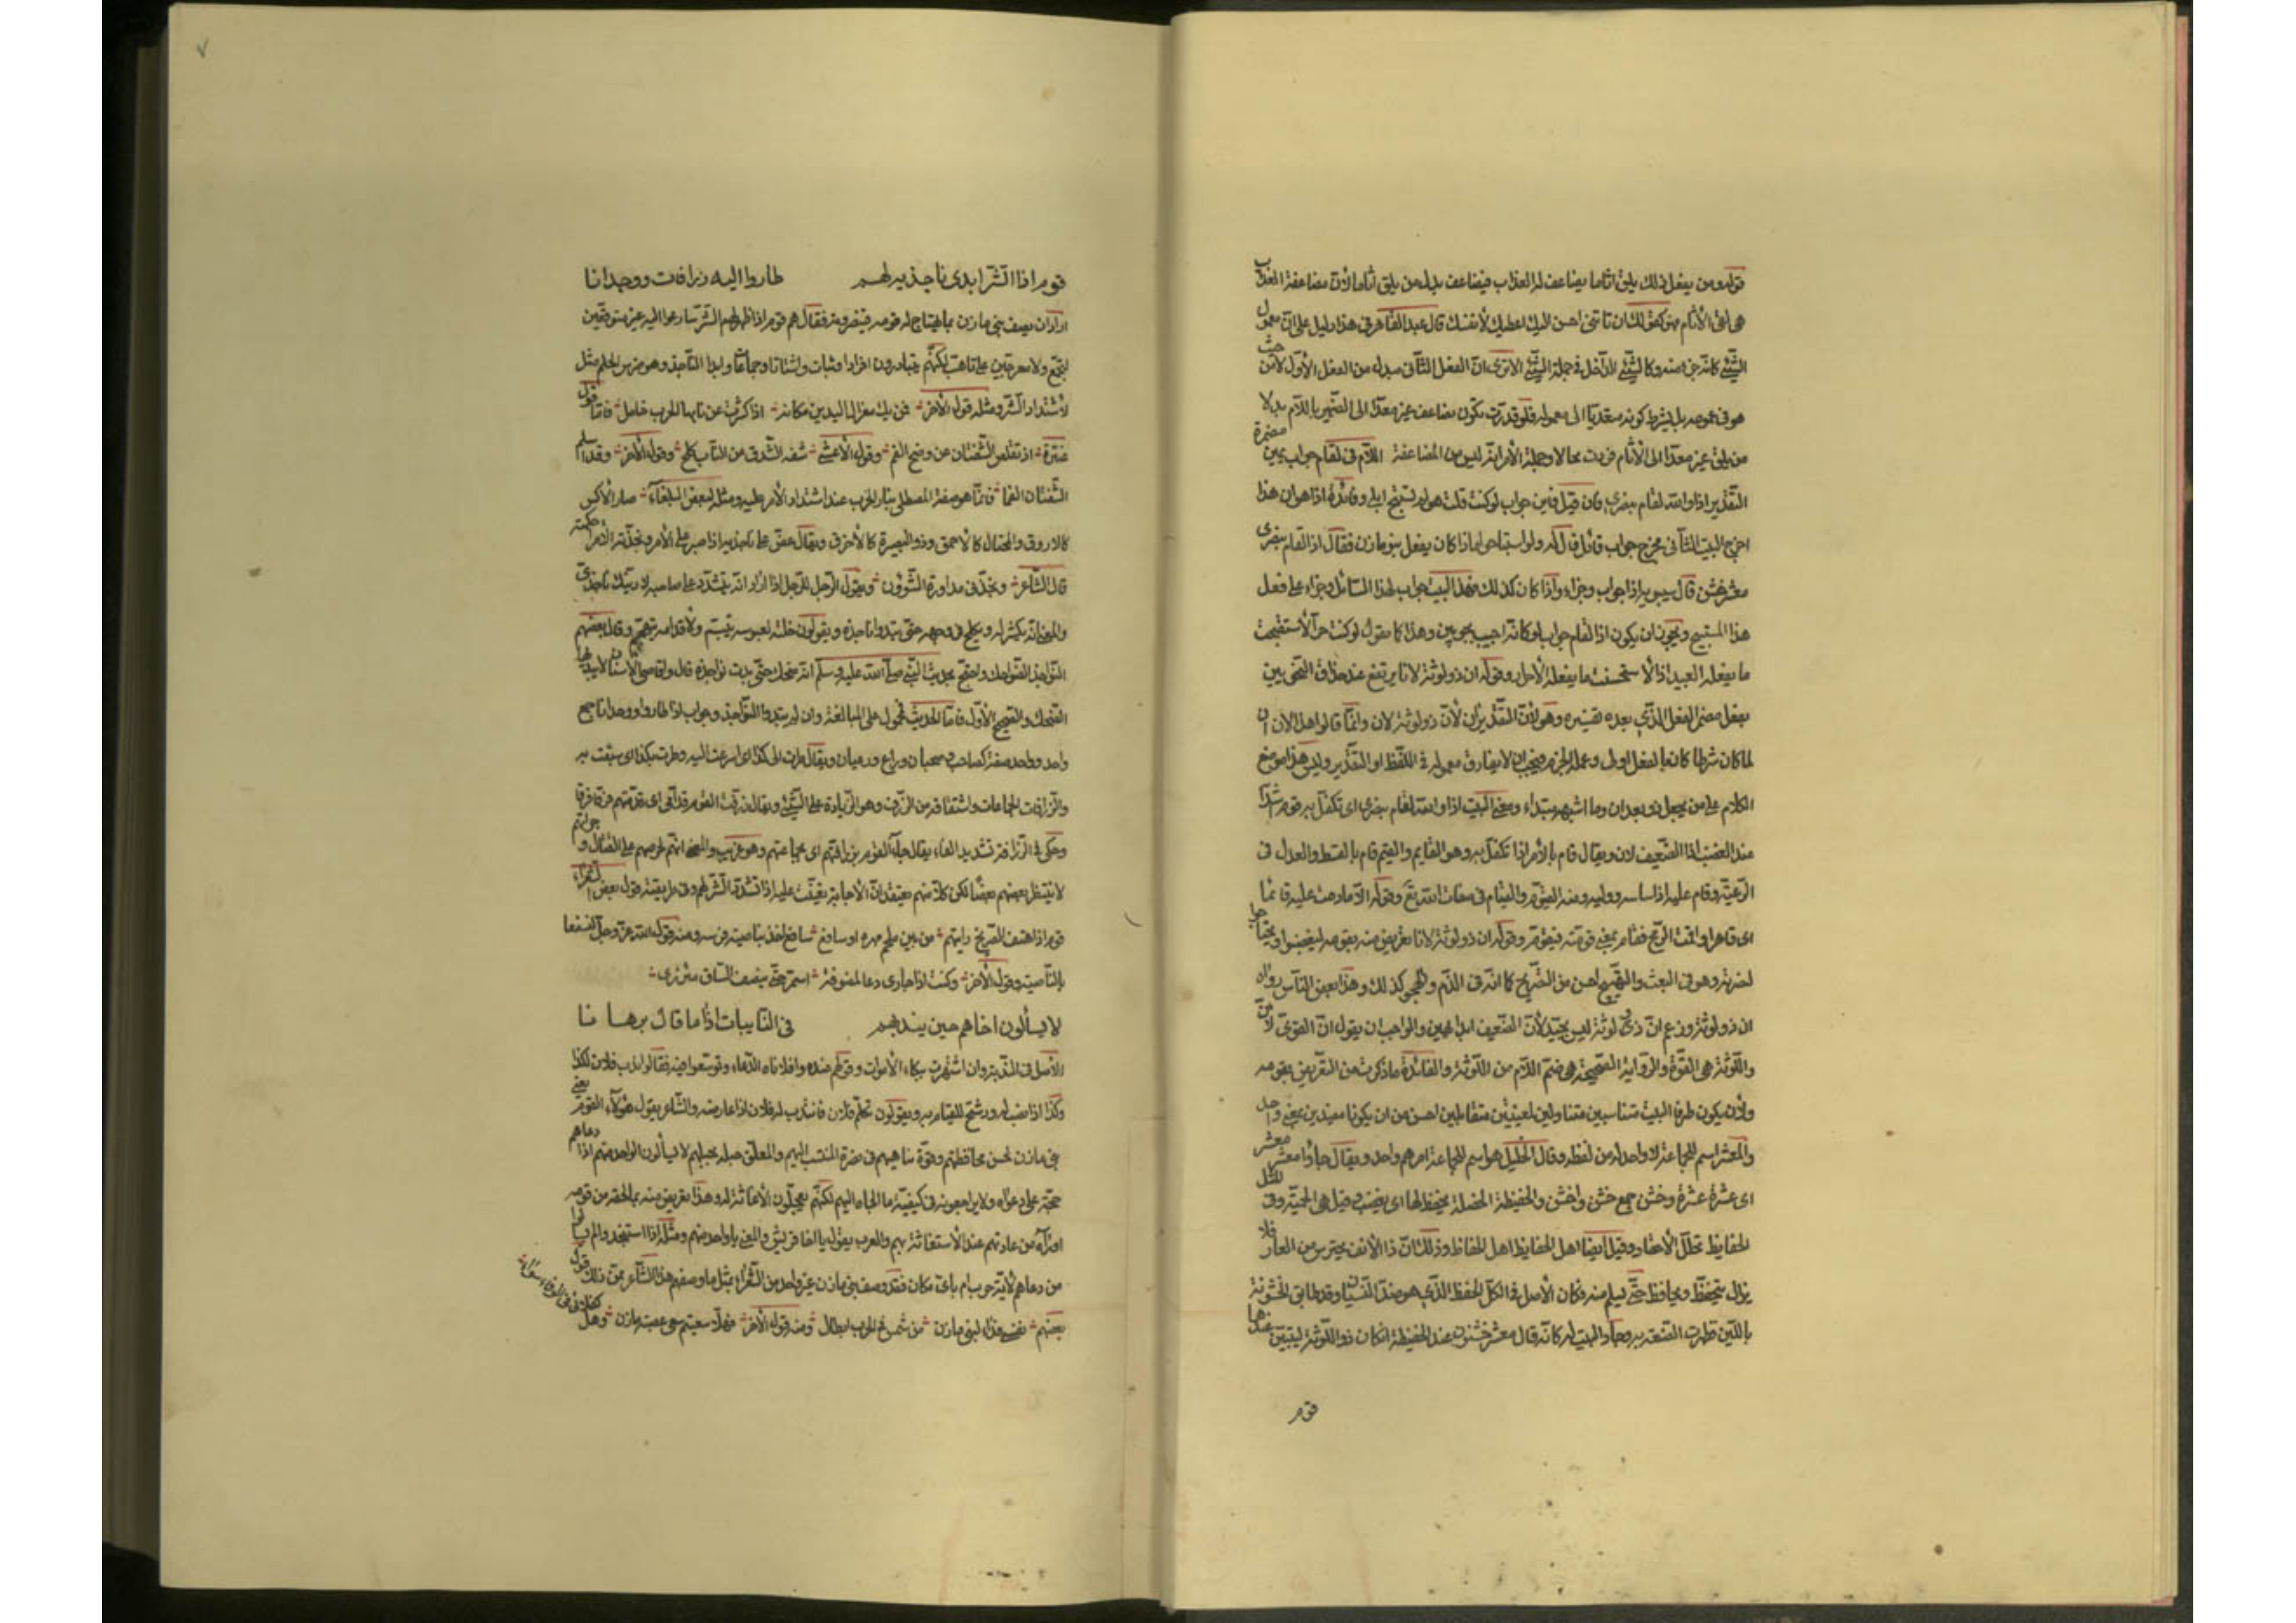 قوله ومن يفعل ذلك يلق اثاما يضاعف له العذاب فيضاعف بدل من يلق اثاما لأن مضاعفة العذاب
هى لقى الأثام وهو كقولك ان تأتنى احسن اليك اعطيك لأنفسك قال عبد القاهر فى هذا دليل على ان معمول
الشئ كانه جزء منه وكالشئ الداخل فى جملة الشئ الا ترى ان الفعل الثانى مبدل من الفعل الأول لا من حيث
هو فى عمومه بل بشرط كونه متعديا الى معموله فلو قدرت يكون يضاعف غير معدا الى الضمير باللام بدلا
من يلق غير معدا الى الأثام فربت محالا وجملة الأمر انه ليس من المضاعفة اللام فى لقام جواب يمين مضمرة
التقدير اذا والله لقام بنصرى فان قيل فاين جواب لو كنت قلت هو لم تستبح ابلى وفائدة اذا هو ان هذا
اخرج البيت الثانى مخرج جواب قائل قال له ولو استباحوا ماذا كان يفعل بنو مازن فقال اذا لقام بنصرى
معشر خشن قال سيبويه اذا جواب وجزاء واذا كان كذلك فهذا البيت جواب لهذا السائل وجزاء على فعل
هذا المستبيح ويجوز ان يكون اذا لقام جواب لو كانه اجيب بجوابين وهذا كما يقول لو كنت حرا لأستقبحت
ما يفعله العبيد اذا لأستحسنت ما يفعله الأحرار وقوله ان ذو لوثة لانا يرتفع عند حذاق النحويين
بفعل مضمر الفعل الذى بعده تفسيره وهو لان التقدير ان لان ذو لوثة لان وانما قالوا هذا لان ان
لما كان شرطا كان بالفعل اولى وعمله الجزم فيجب ان لا يفارق معموله فى اللفظ او التقدير وليس هذا موضع
الكلام على من يجعل ذو بعد ان وما اشبهه مبتداء ومعنى البيت اذا والله لقام بنصرى اى تكفل به قوم اشداء
عند الغضب اذا الضعيف لان ويقال قام بالأمر اذا تكفل به وهو القايم والقيم قام بالقسط والعدل فى
الرعية وقام عليه اذا ساسه ووليه ومنه القيوم والقيام فى صفات الله تع وقوله الا ما دمت عليه قائما
اى قاهرا وانت الريح فقام بمعنى قومته فيقوم وقوله ان ذو لوثة لانا تعريض منه بقومه ليغضبوا ويحتاجوا
لنصرته وهو فى البعث والتهييج احسن من التصريح كما انه فى الذم والهجو كذلك وهذا بعض الناس رواه
ان ذو لوثة وزعم ان ذى لوثة ليس بجيد لأن الضعيف ابدا مهين والواجب ان يقول ان القوى لان
واللوثة هى القوة والرواية الصحيحة هى ضم اللام من اللوثة والفائدة ما ذكرت من التعريض بقومه
ولأن يكون طرفا البيت متناسبين متناولين لمعنيين متقابلين احسن من ان يكونا مفيدين بمعنى واحد
والمعشر اسم للجماعة لا واحد له من لفظه وقال الخليل هو اسم لجماعة امرهم واحد ويقال جاؤا معشر معشر
اى عشرة عشرة وخشن جمع خشن واخشن والحفيظة الخصلة يحفظ لها اى يغضب وقيل هى الحمية وفى المثل
الحفايظ تحلل الأحقاد وقيل ايضا اهل الحفايظ اهل الحفاظ وذلك ان ذا الأنف يحترس من العار فلا
يزال يتحفظ ويحافظ حتى يسلم منه فكان الأصل فى الكل الحفظ الذى هو ضد النسيان وقد طابق الخشونة
باللين فظهرت الصنعة به وجاد البيت له كانه قال معشر خشن عند الحفيظة ان كان ذو اللوثة ليتبين عندها
قوم
قوم اذا الشر ابدى ناجذيه لهم طاروا اليه زرافات ووحدانا
اراد ان يصف بنى مازن بما يهتاج له قومه فينصرونه فقال هم قوم اذا ظهر لهم الشر سارعوا اليه غير متوقفين
لتجمع ولا معرجين على تاهب لكنهم يتبادرون افرادا وثبات واشتاتا وجماعا وابدا الناجذ وهو ضرس الحلم مثل
لأشتداد الشر ومثله قول الأخر فمن يك معزال اليدين مكانه اذا كشرت عن نابها الحرب خامل فاما قول
عنترة اذ تقلص الشفتان عن وضح الفم وقول الأعشى شفه الشدق عن الناب كلح وقول الأخر وقد اسلم
الشفتان الفما فانما هو صفة المصطلى بنار الحرب عند اشتداد الأمر عليه ومثله لبعض البلغاء صار الأكس
كالاروق والمحتال كالاحمق وذو البصيرة كالأخرق ويقال عض على ناجذه اذا صبر على الأمر ونجذته الأمور احكمته
قال الشاعر ونجذنى مداورة الشؤون ويقول الرجل للرجل اذا اراد انه يتشدد على صاحبه لاريتك ناجذى
والمعنى انه يكشر له ويكلح فى وجهه حتى يبدوا ناجذه ويقولون خلته لعبوسه تبسم ولأقدامه تجهم وقال بعضهم
النواجذ الضواحك واحتج بحديث النبى صلى الله عليه وسلم انه ضحك حتى بدت نواجذه قال واقاصى الأسنان لا يبديها
الضحك والصحيح الأول فاما الحديث فمحمول على المبالغة وان لم يبدوا النواجذ وجواب اذا طاروا ووحدانا جمع
واحد وواحد صفة كصاحب وصحبان وراع ورعيان ويقال طرت الى كذا اى اسرعت اليه وطرت بكذا اى سبقت به
والزرافات الجماعات واشتقاقه من الزرف وهو الزيادة على الشئ ويقال زرفت القوم قدامى اى قدمتهم فرقا فرقا
وحكى فى الزرافة تشديد الفاء يقال جاء القوم بزرافتهم اى بجماعتهم وهو غريب والمعنى انهم لحرصهم على القتال وجراتهم
لا ينتظر بعضهم بعضا لكن كلا منهم يعتقد ان الأجابة تعينت عليه اذا تشدد الشر لهم وفى طريقته قول بعض الشعراء
قوم اذا هتف الصريخ رايتهم من بين ملجم مهره او سافع سافع اخذ بناصية فرسه ومنه قول الله عز وجل لنسفعا
بالناصية وقول الأخر وكنت اذا جارى دعا لمضوفة اشمر حتى ينصف الساق مئزرى
لا يسألون اخاهم حين يندبهم فى النايبات اذا ما قال برهانا
الأصل فى الندبة وان اشتهرت ببكاء الأموات وقولهم عنده وافلاناه الدعاء وتوسعوا فيه فقالوا ندب فلان لكذا
وكذا اذا نصب له ورشح للقيام به ويقولون تكلم فلان فانتدب له فلان اذا عارضه والشاعر يقول هؤلاء القوم يعنى
بنى مازن لحسن محافظتهم وقوة تناهيهم فى نصرة المنتسب اليهم والمعلق حبله بحبلهم لا يسألون الواحد منهم اذا دعاهم
حجة على دعواه ولا يراجعونه فى كيفية ما الجاه اليهم لكنهم يعجلون الأغاثة له وهذا تعريض منه بما لحقه من قومه
اوراه من عادتهم عند الأستغاثة بهم والعرب يقول يا اخا قريش والمعنى يا واحدا منهم ومثله اذا استنجدوا لم يسألوا
من دعاهم لأية حرب ام باى مكان فقد وصف بنى مازن غير واحد من الشعراء بمثل ما وصفهم هذا الشاعر فمن ذلك قول
بعضهم نفسى فداء لبنى مازن من شمس فى الحرب ابطال ومنه قول الأخر فهلا سعيتم سعى عصبة مازن وهل